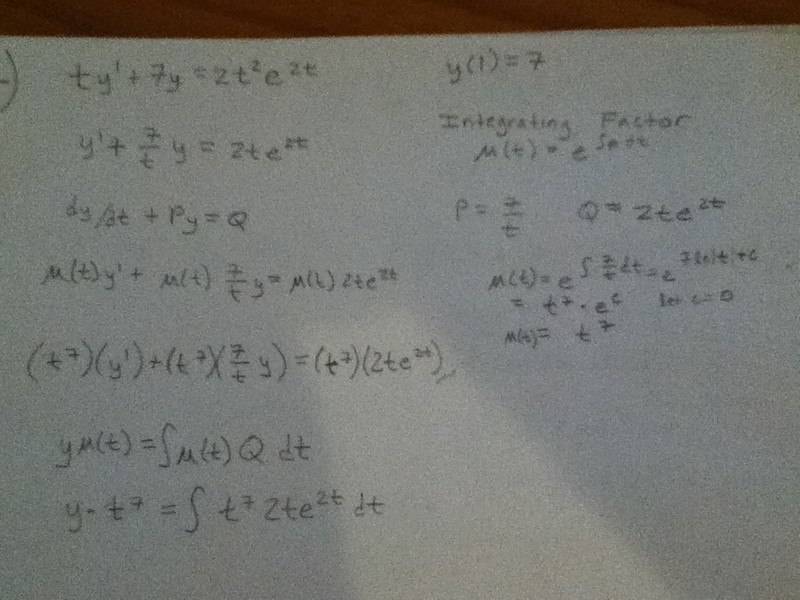 ty' + 7y = 2t²e^{2t}    y(1) = 7
y' + 7/t y = 2te^{2t}
Integrating Factor
μ(t) = e^{∫p dt}
dy/dt + Py = Q
P = 7/t    Q = 2te^{2t}
μ(t)y' + μ(t) 7/t y = μ(t) 2te^{2t}
μ(t) = e^{∫ 7/t dt} = e^{7 ln|t| + c}
= t⁷ · e^c    let c = 0
μ(t) = t⁷
(t⁷)(y') + (t⁷)(7/t y) = (t⁷)(2te^{2t})
yμ(t) = ∫μ(t) Q dt
y · t⁷ = ∫ t⁷ 2te^{2t} dt